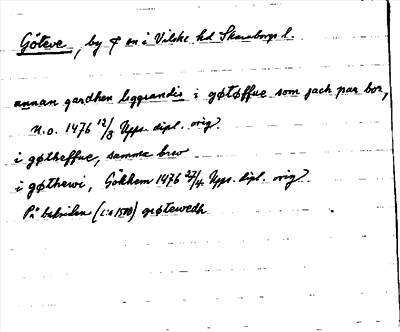 Göteve, by & sn i Vilske hd Skaraborgs l.
annan gardhen leggiandis i gøtøffue som jach par bor,
u.o. 1476 12/3 Upps. dipl. orig.
i gøtheffue, samma brev
i gøthewi, Gökhem 1476 27/4. Upps. dipl. orig.
På baksidan (c:a 1500) gøtewedh